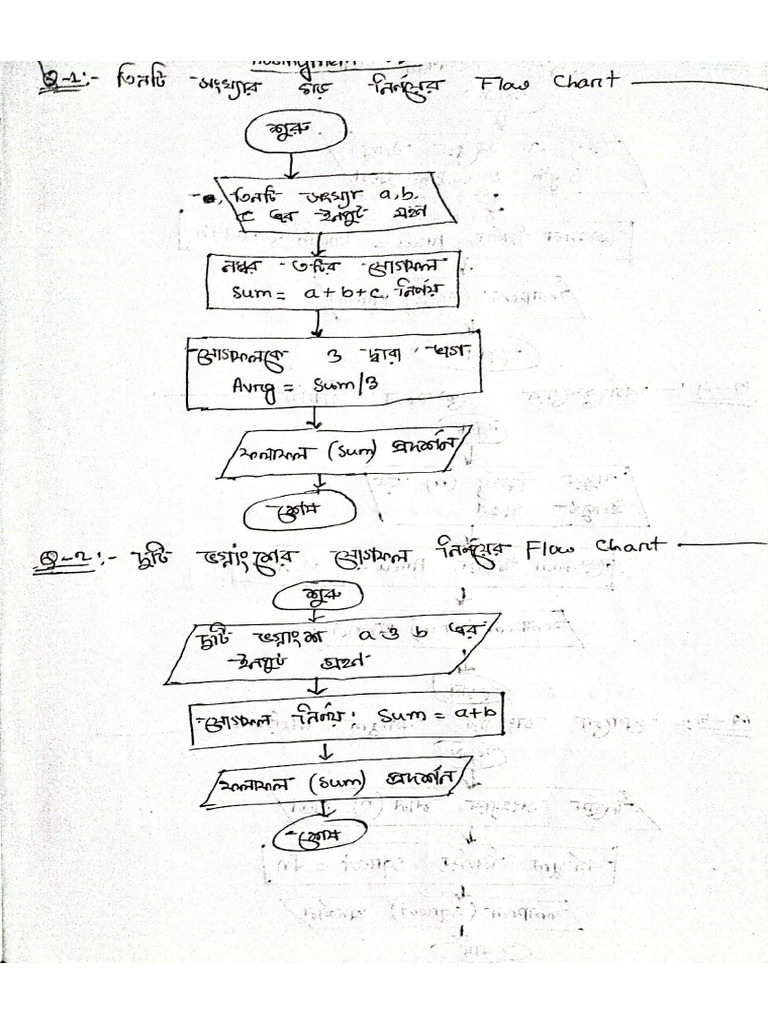 Q-1:- তিনটি সংখ্যার গড় নির্ণয়ের Flow Chart
শুরু
তিনটি সংখ্যা a, b,
c এর ইনপুট গ্রহণ
নম্বর ৩টির যোগফল
Sum = a+b+c নির্ণয়
যোগফলকে 3 দ্বারা ভাগ
Avrg = Sum/3
ফলাফল (Sum) প্রদর্শন
শেষ
Q-2:- দুটি ভগ্নাংশের যোগফল নির্ণয়ের Flow Chart
শুরু
দুটি ভগ্নাংশ a ও b এর
ইনপুট গ্রহণ
যোগফল নির্ণয়: Sum = a+b
ফলাফল (Sum) প্রদর্শন
শেষ